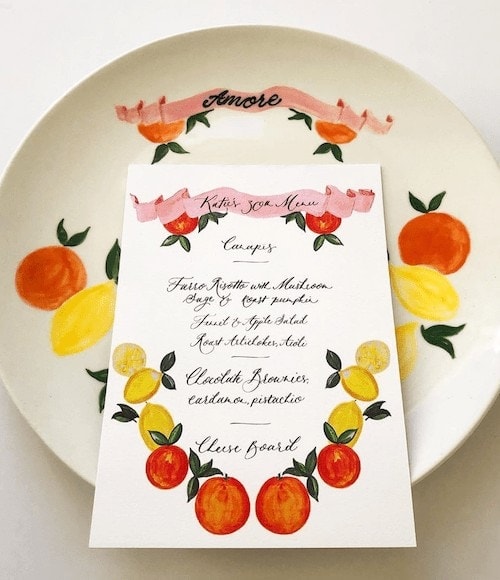 Amore
Katie's 30th Menu
Canapés
Farro Risotto with Mushroom
Sage & Roast pumpkin
Fennel & Apple Salad
Roast Artichokes, Aioli
Chocolate Brownies,
cardamon, pistachio
Cheese Board